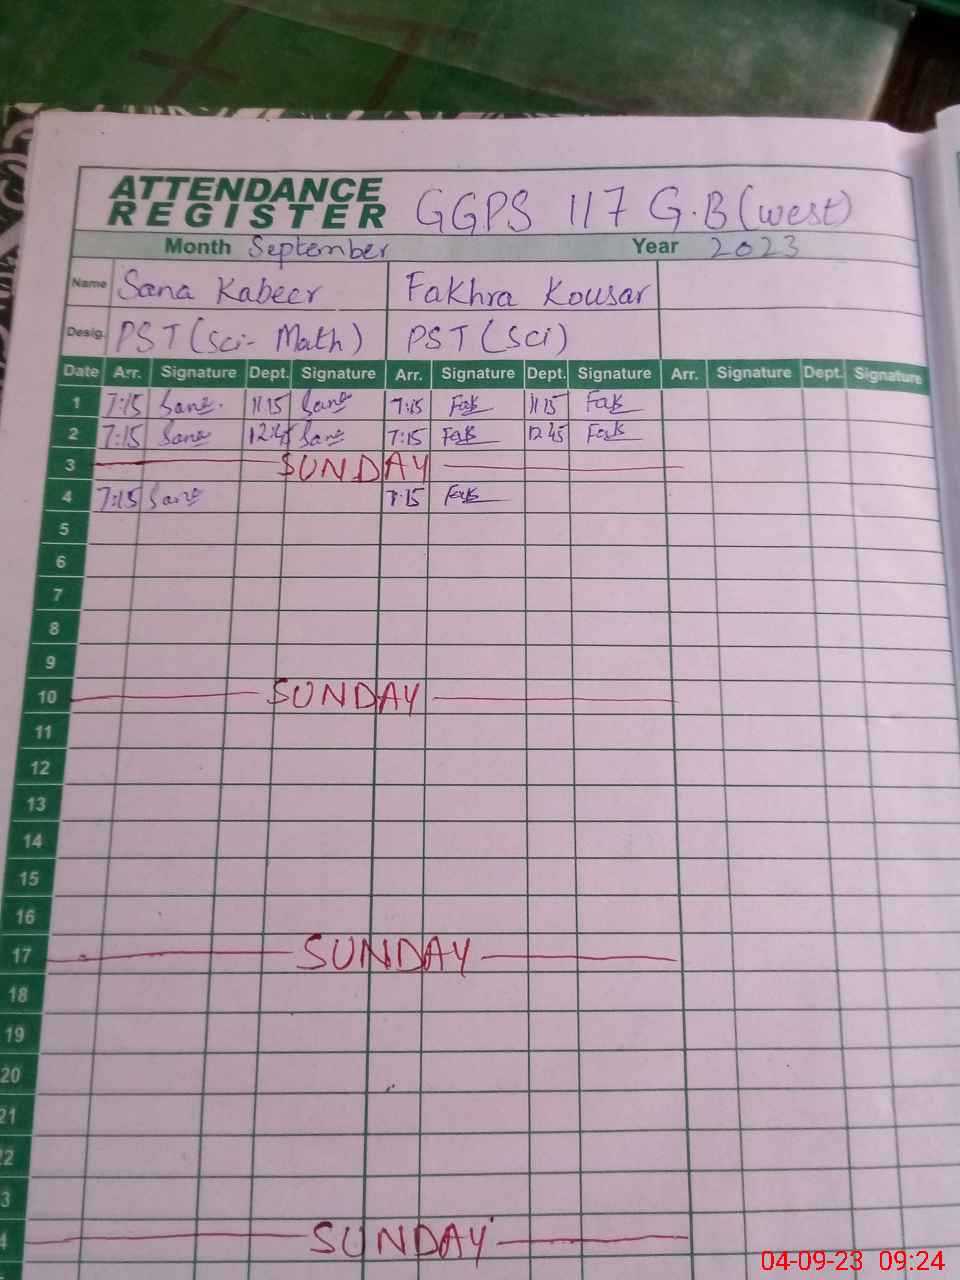 ATTENDANCE
REGISTER GGPS 117 G.B (west)
Month September Year 2023
Name Sana Kabeer Fakhra Kousar
Desig. PST (Sci- Math) PST (Sci)
Date Arr. Signature Dept. Signature Arr. Signature Dept. Signature Arr. Signature Dept. Signature
1 7:15 Sana 11:15 Sana 7:15 Fak 11:15 Fak
2 7:15 Sana 12:45 Sana 7:15 Fak 12:45 Fak
3 SUNDAY
4 7:15 Sana 7:15 Fak
5
6
7
8
9
10 SUNDAY
11
12
13
14
15
16
17 SUNDAY
18
19
20
21
2
3
4 SUNDAY
04-09-23 09:24